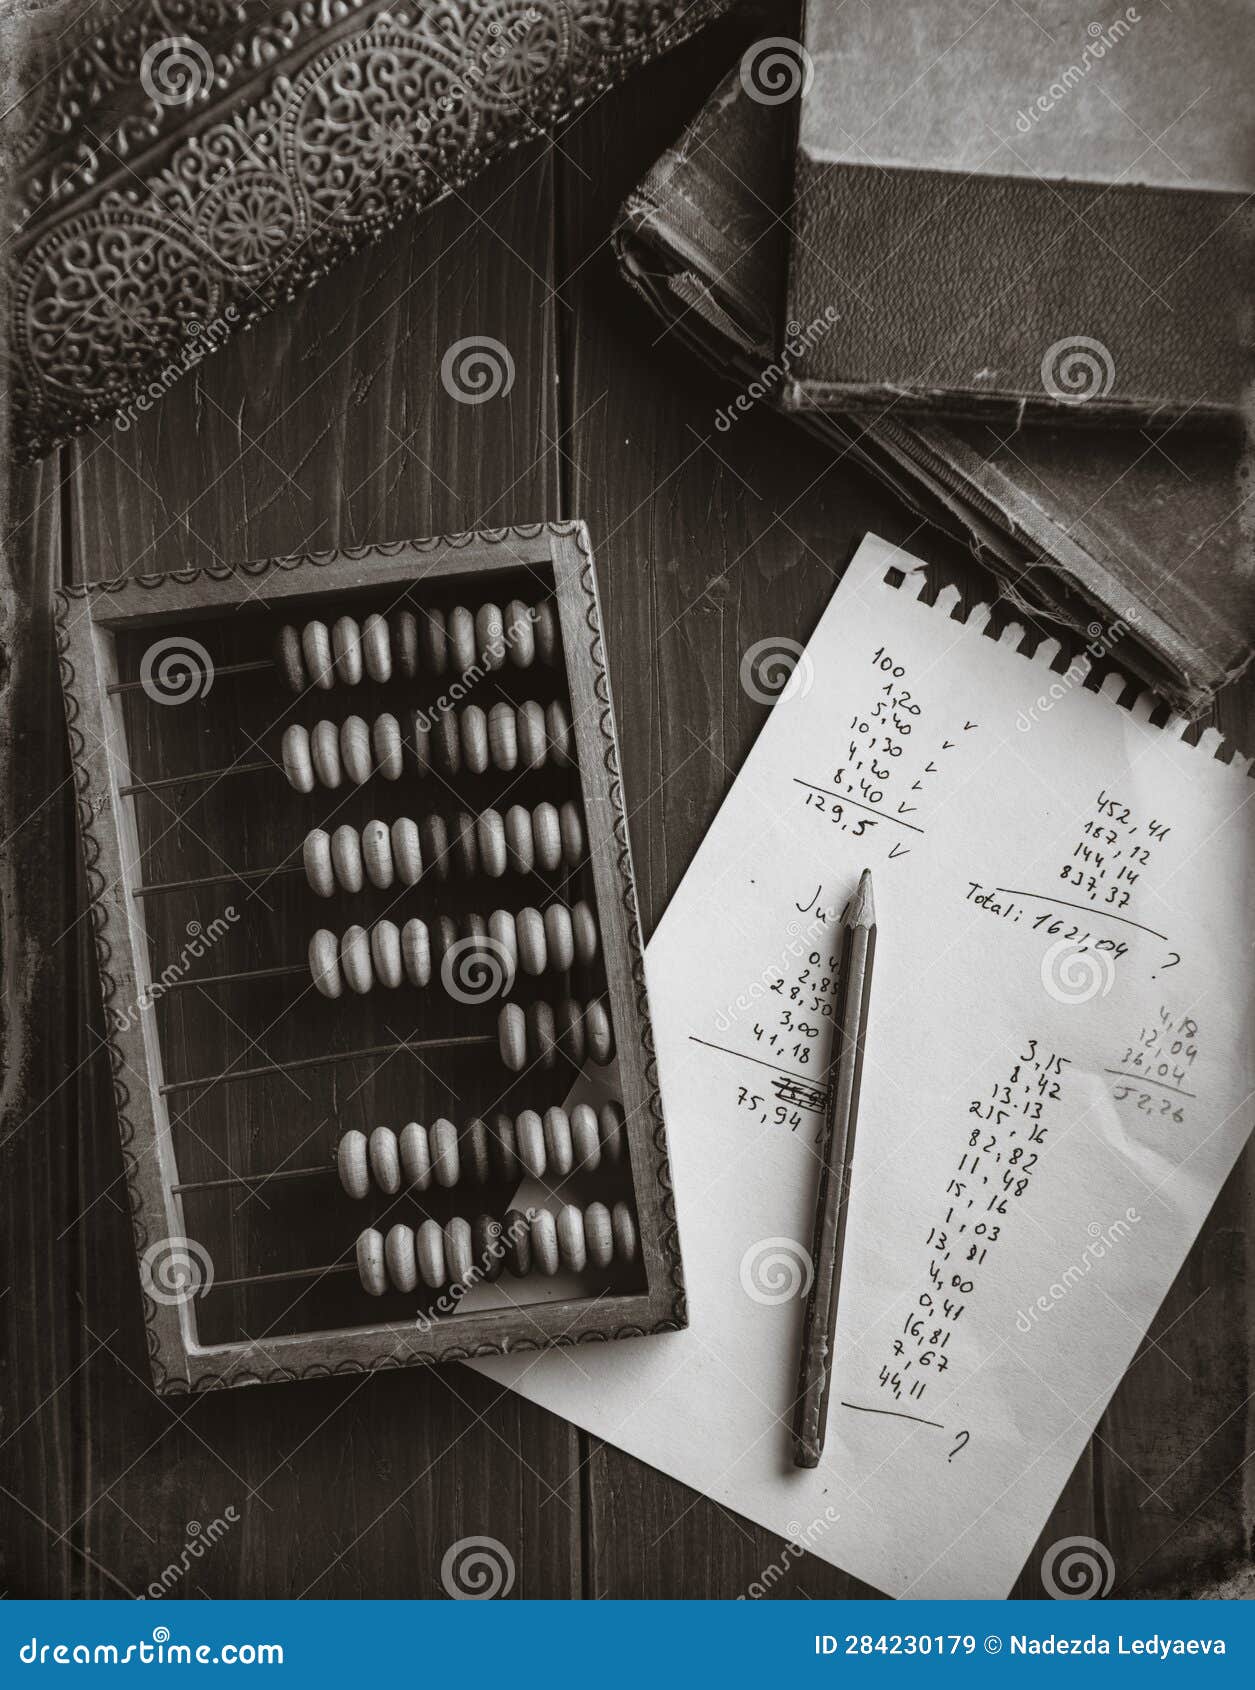 100
1,20
5,40 ✓
10,30 ✓
4,20 ✓
8,40 ✓
129,5 ✓
452,41
187,12
144,14
837,37
Total: 1621,04 ?
2,85
28,50
3,00
41,18
75,94
4,18
12,04
36,04
52,26
3,15
8,42
13.13
215,16
82,82
11,48
15,16
1,03
13,81
4,00
0,41
16,81
7,67
44,11
?
dreamstime.com
ID 284230179 © Nadezda Ledyaeva